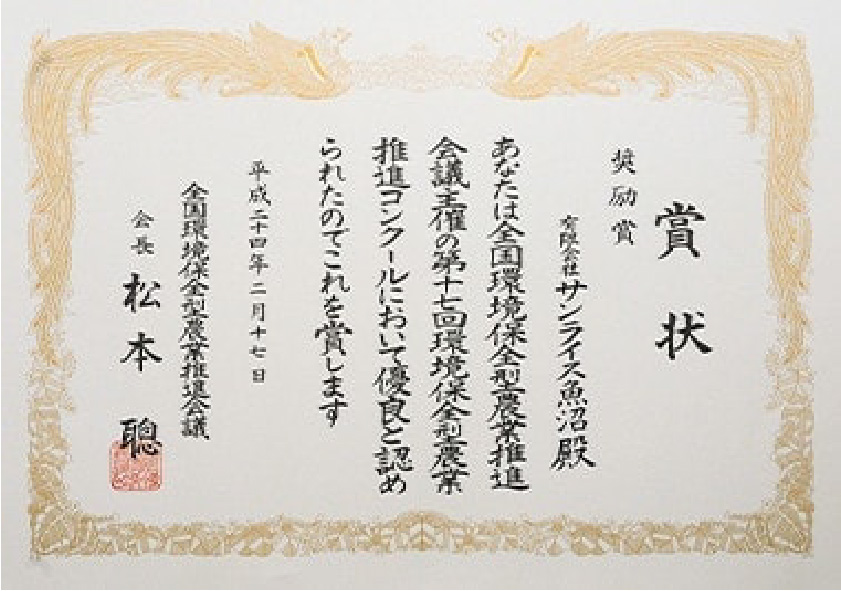 賞状
奨励賞
有限会社サンライス魚沼殿
あなたは全国環境保全型農業推進
会議主催の第十七回環境保全型農業
推進コンクールにおいて優良と認め
られたのでこれを賞します
平成二十四年二月十七日
全国環境保全型農業推進会議
会長 松本 聰